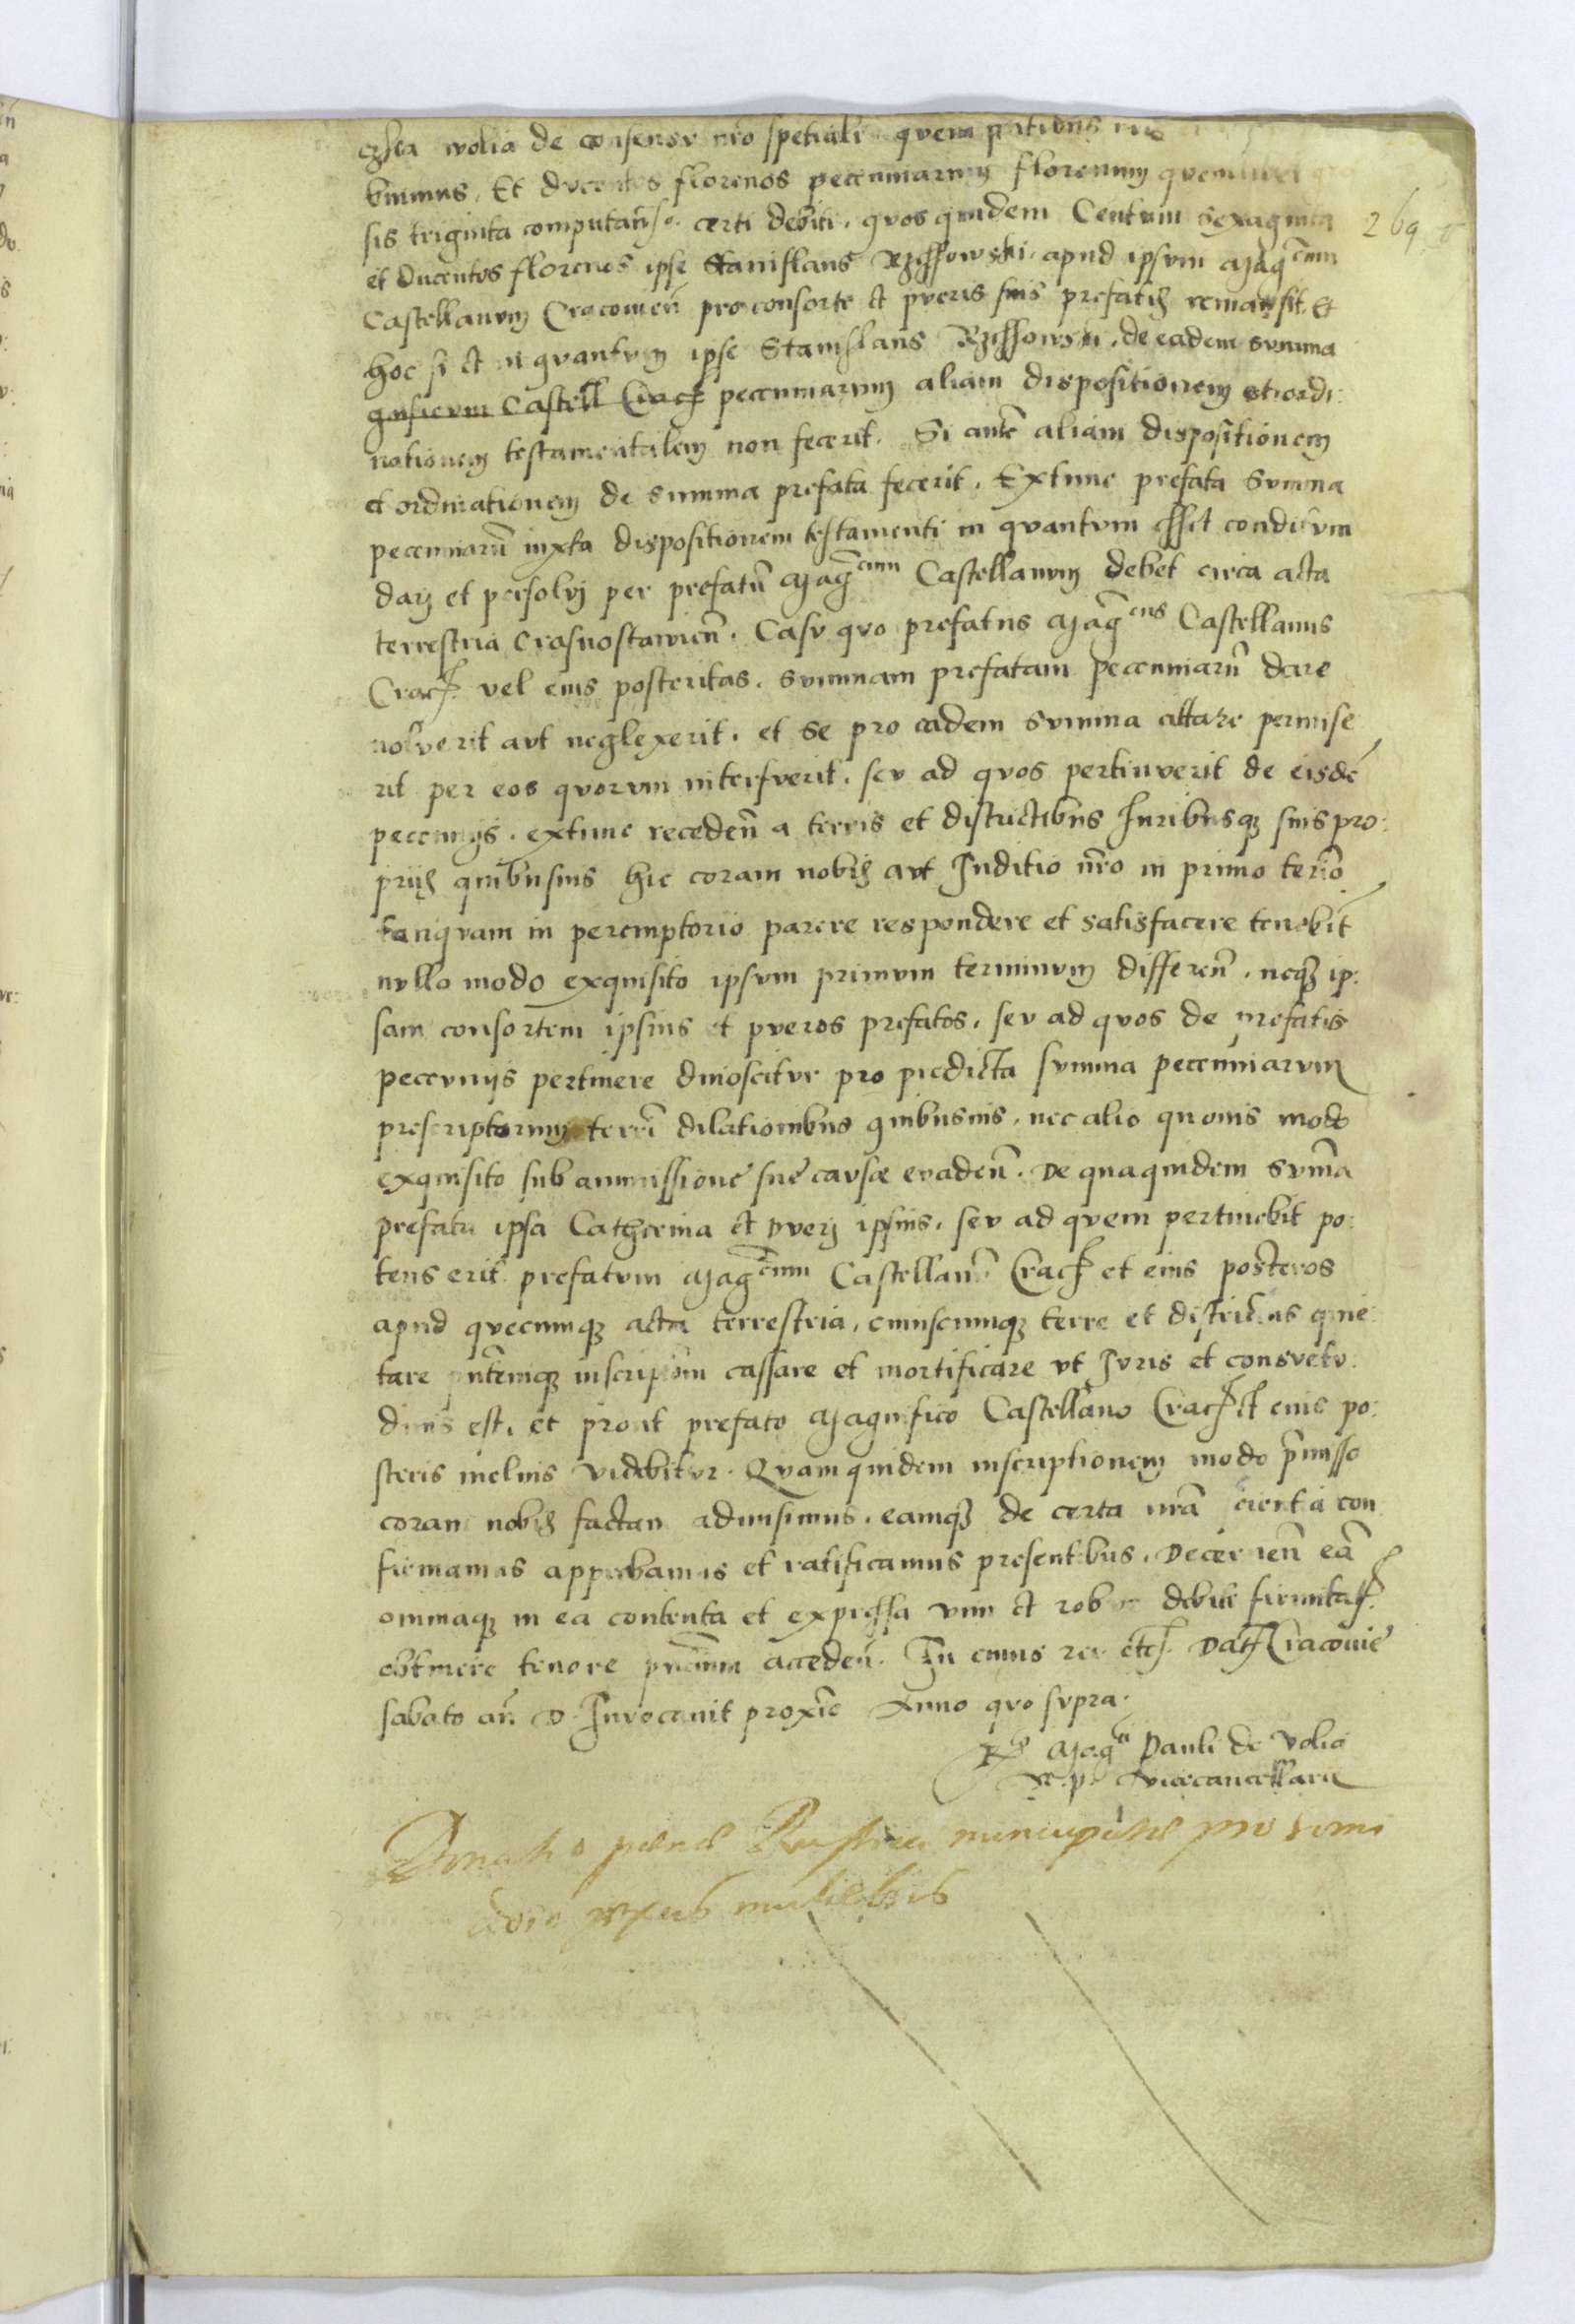 wolia de consensu nro spetiali quem
buimus. Et ducentos florenos pecuniarum florenum quemlibet
sis triginta computatiso. certi debiti. quos quidem Centum sexaginta
269
et Ducentos florenos ipse Stanislaus Rzessowski. apud ipsum Magcum
Castellanum Cracovień pro consorte et pueris suis prefatis remansit. Et
hoc si et in quantum ipse Stanislaus Rzessowski. de eadem summa
gnificum Castell Crac pecuniarum aliam dispositionem et ordi:
nationem testamentalem non fecerit. Si aute aliam dispositionem
et ordinationem de summa prefata fecerit. Extunc prefata Summa
pecuniarū iuxta dispositionem testamenti in quantum essit conditum
darj et persolvj per prefatū Magcum Castellanum debet circa acta
terrestria Crasnostawień. Casu quo prefatus Magcus Castellanus
Crac. vel eius posteritas. summam prefatam pecuniarū dare
noluerit aut neglexerit. et se pro eadem summa cittare permise
rit per eos quorum interfuerit. seu ad quos pertinuerit de eisdē
pecunijs. extunc recedeń a terris et districtibus Juribusq suis pro:
prijs quibusuis hic coram nobis aut Juditio nro in primo termo
tanquam in peremptorio parere respondere et satisfacere tenebit
nullo modo exquisito ipsum primum terminum differeń. neq ip:
sam consortem ipsius et pueros prefatos. seu ad quos de prefatis
pecunijs pertinere dinoscitur pro predicta summa pecuniarum
prescriptarum terri dilationibus quibusuis. nec alio quouis modo
exquisito sub ammissione sue cause evadeń. De qua quidem summa
prefata ipsa Catherina et puerj ipsius. seu ad quem pertinebit po:
tens erit prefatum Magcum Castellanū Crac et eius posteros
apud quecumq acta terrestria. cuiuscumq terre et districtus quie
tare pntemq inscriptiom cassare et mortificare ut Juris et consuetu:
dinis est. et prout prefato Magnifico Castellano Crac et eius po:
steris melius videbitur. Quam quidem inscriptionem modo pmisso
coram nobis factam admisimus. eamq de certa nra scientia con
firmamus approbamus et ratificamus presentibus. Decerneń eā
omniaq in ea contenta et expressa vim et robur debite firmitat
obtinere tenore pntium accedeń. In cuius rei etc. Dat Cracovie
sabato añ D. Invocavit proxīe Anno quo supra.
Rō Magci Pauli de Volia
R. p. vicecancellarij
Donatio